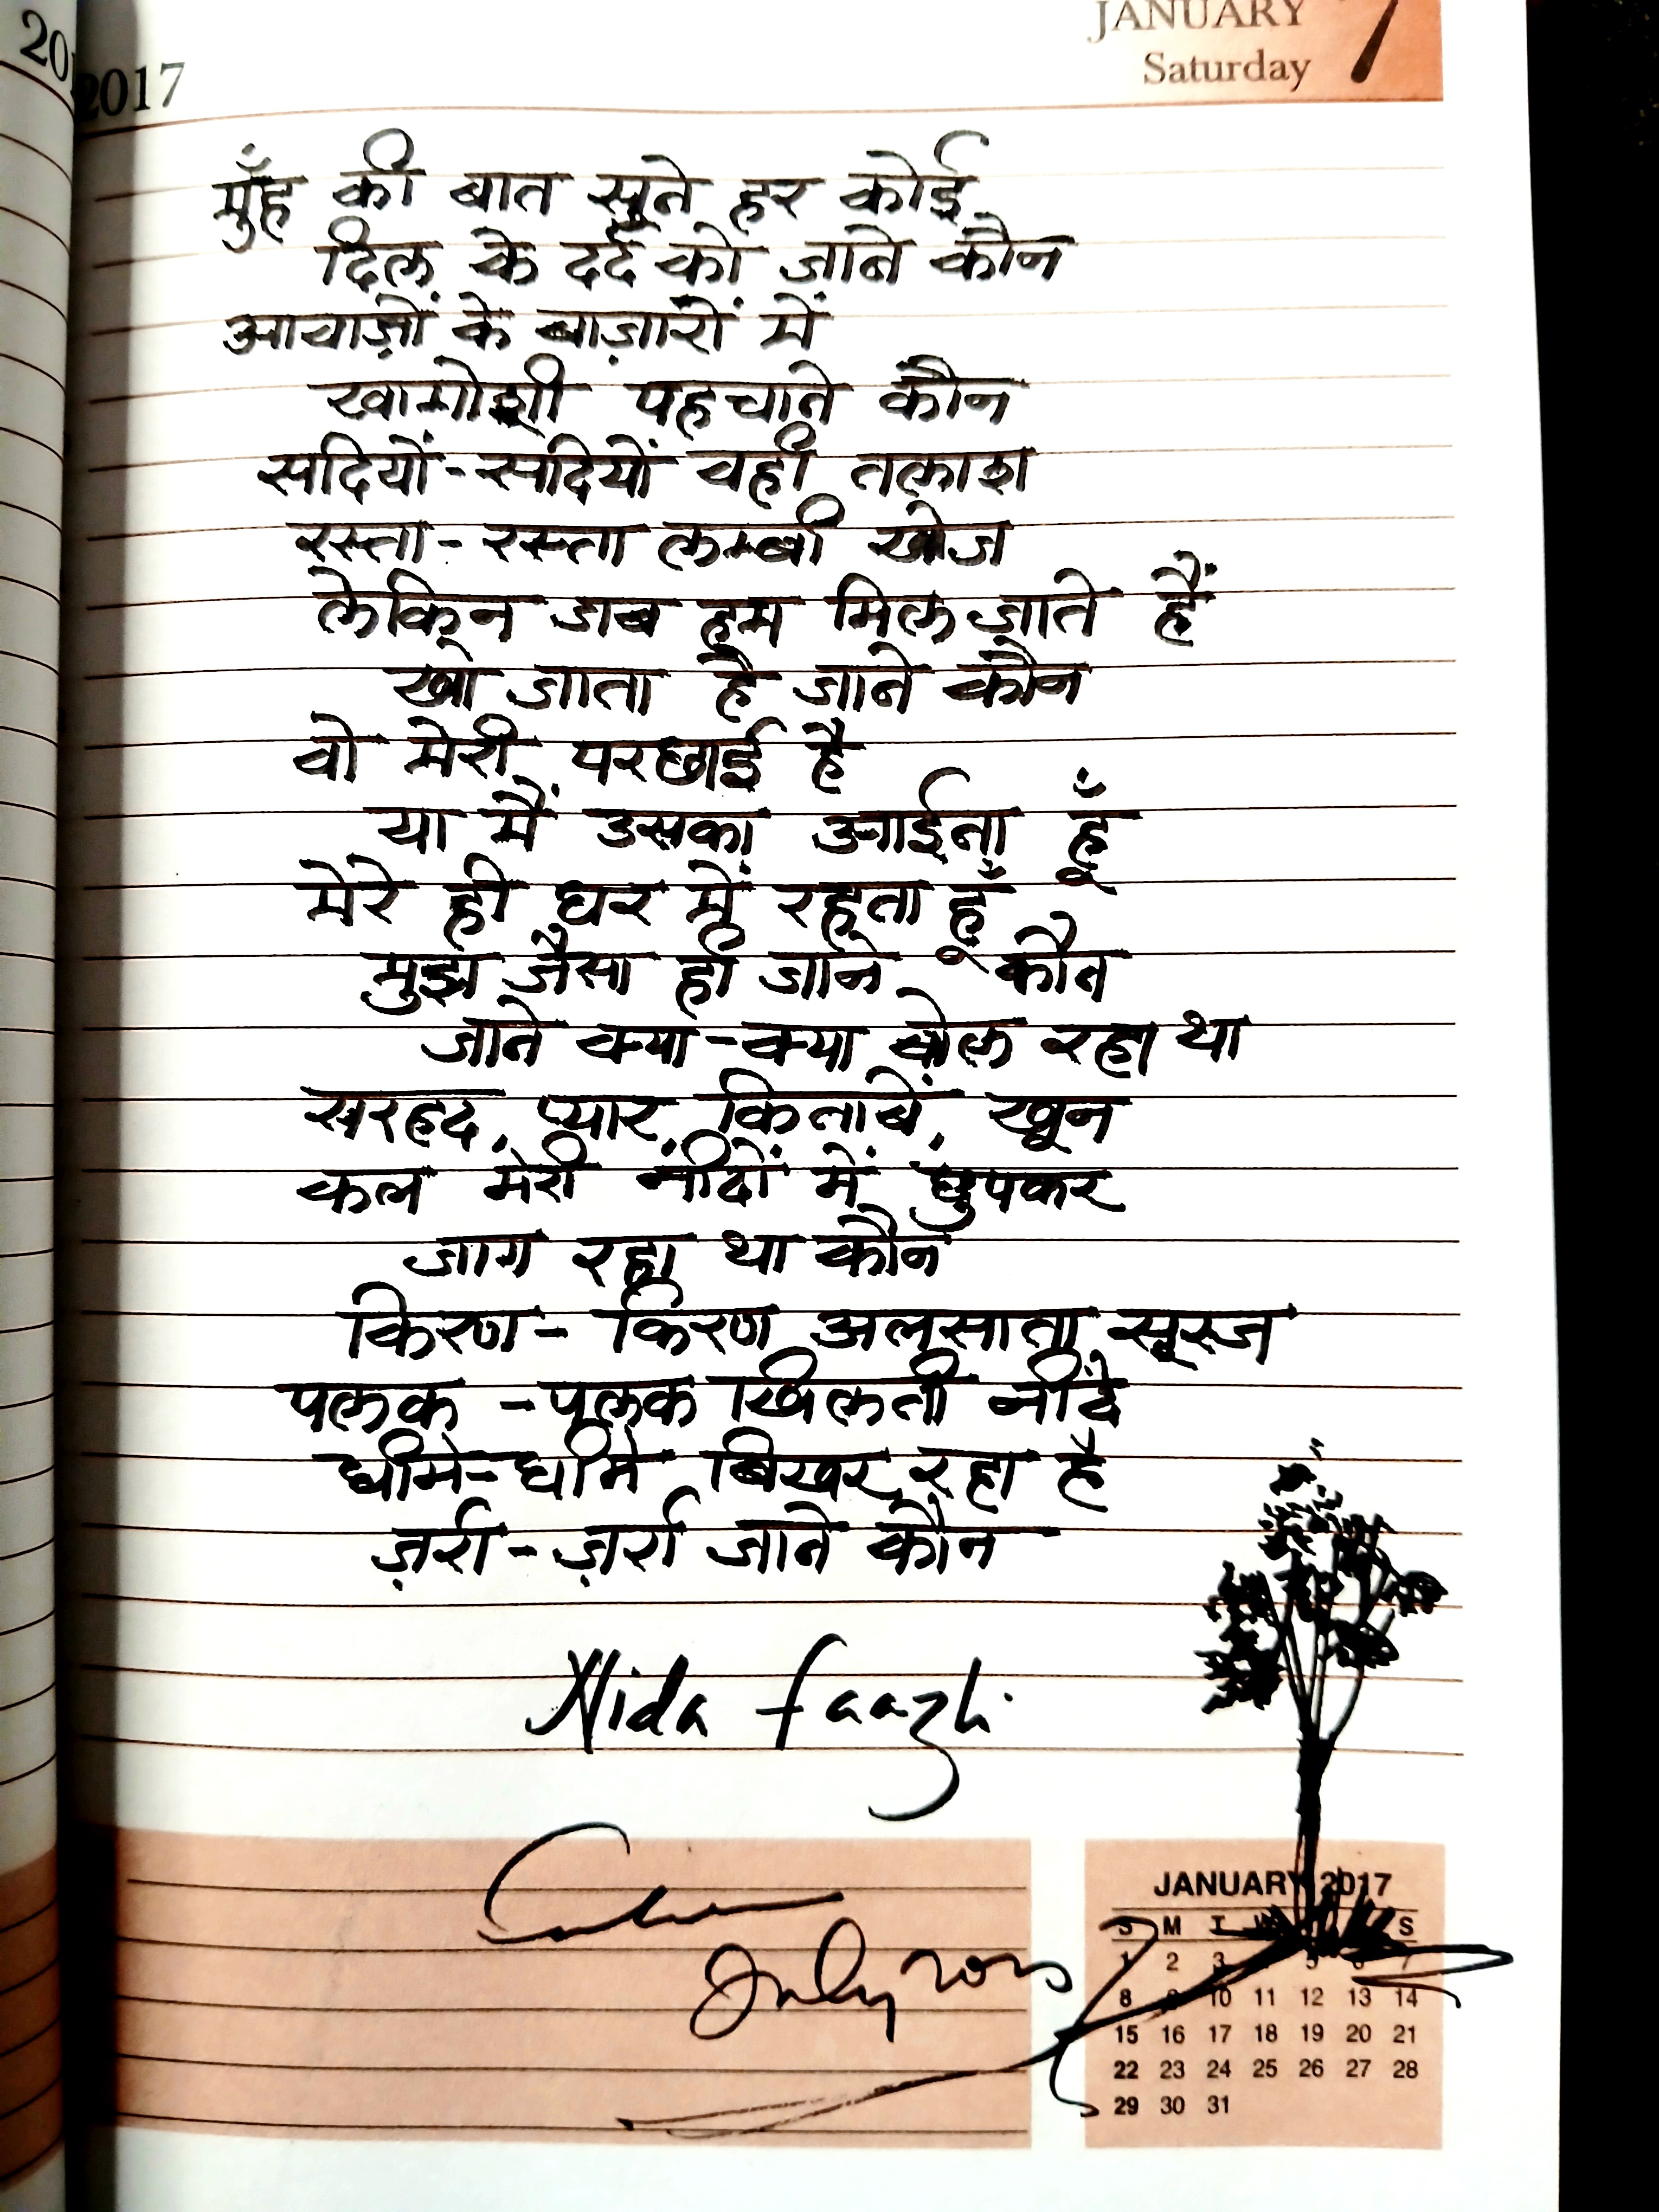 20
2017
JANUARY 7
Saturday
मुँह की बात सुने हर कोई
दिल के दर्द को जाने कौन
आवाज़ों के बाज़ारों में
खामोशी पहचाने कौन
सदियों-सदियों वही तलाश
रस्ता-रस्ता लम्बी खोज
लेकिन जब हम मिल जाते हैं
खो जाता है जाने कौन
वो मेरी परछाई है
या मैं उसका आईना हूँ
मेरे ही घर में रहता हूँ
मुझ जैसा ही जाने कौन
जाने क्या-क्या बोल रहा था
सरहद, प्यार, किताबें, खून
कल मेरी नींदों में छुपकर
जाग रहा था कौन
किरण-किरण अलसाता सूरज
पलक-पलक खिलती नींदे
धीमे-धीमे बिखर रहा है
ज़र्रा-ज़र्रा जाने कौन
Nida faazli
July 2020
JANUARY 2017
S M T W S
1 2 3 4 5 6 7
8 9 10 11 12 13 14
15 16 17 18 19 20 21
22 23 24 25 26 27 28
29 30 31